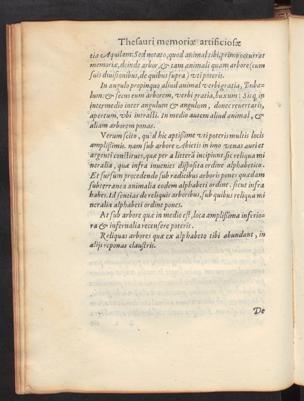 Thesauri memoriæ artificiosæ
tia Aquilam: Sed notato, quod animal tibi, primo occurrat
memoriæ, deinde arbor, & tam animali quam arbore (cum
suis diuisionibus, de quibus supra) vti poteris.
In angulo propinquo aliud animal verbi gratia,
lum: & secus eum arborem, verbi gratia, buxum: Sicq, in
intermedio inter angulum & angulum, donec reuertaris,
apertum, vbi intrasti. In medio autem aliud animal, &
aliam arborem ponas.
Verum scito, quod hic aptissime vti poteris multis locis
amplissimis. nam sub arbore Abietis in imo venas auri et
argenti constitues, quæ per a litterâ incipiunt: sic reliqua mi
neralia, quæ infra inuenies disposita ordine alphabetico.
Et sursum procedendo sub radicibus arboris pones quædam
subterranea animalia eodem alphabeti ordine, sicut infra
habes. Id feceris de reliquis arboribus, sub quibus reliqua mi
neralia alphabeti ordine pones.
At sub arbore quæ in medio est, loca amplissima inferio
ra & infernalia recensere poteris.
Reliquas arbores quæ ex alphabeto tibi abundant, in
alijs reponas claustris.
De